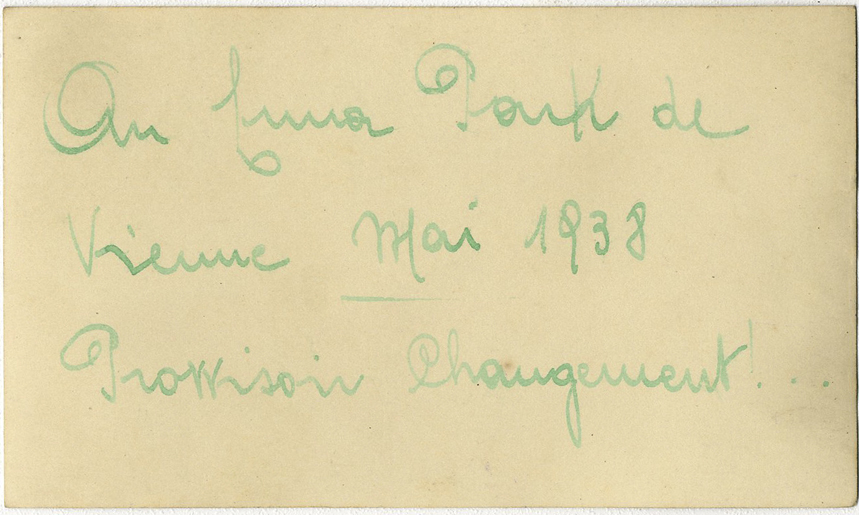 Au Luna Park de
Vienne Mai 1938
Prowisoir Changement!...